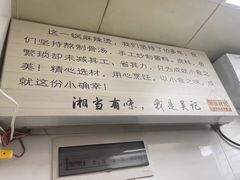 这一锅麻辣烫，我们坚持了10多年，我
们坚持熬制骨汤，手工炒制酱料，底料，各
繁琐却未减其工，省其力，只为成就小食之
美！精心选材，用心烹饪，以小食之味，成
就这份小确幸！
湘当有味，我是吴记